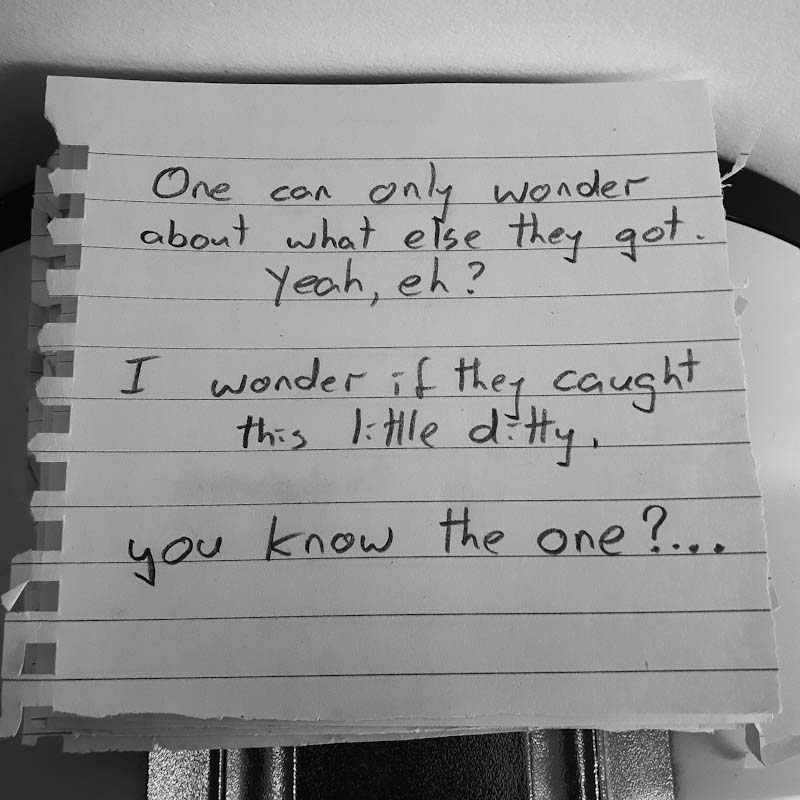 One can only wonder
about what else they got.
Yeah, eh?
I wonder if they caught
this little ditty.
you know the one?...